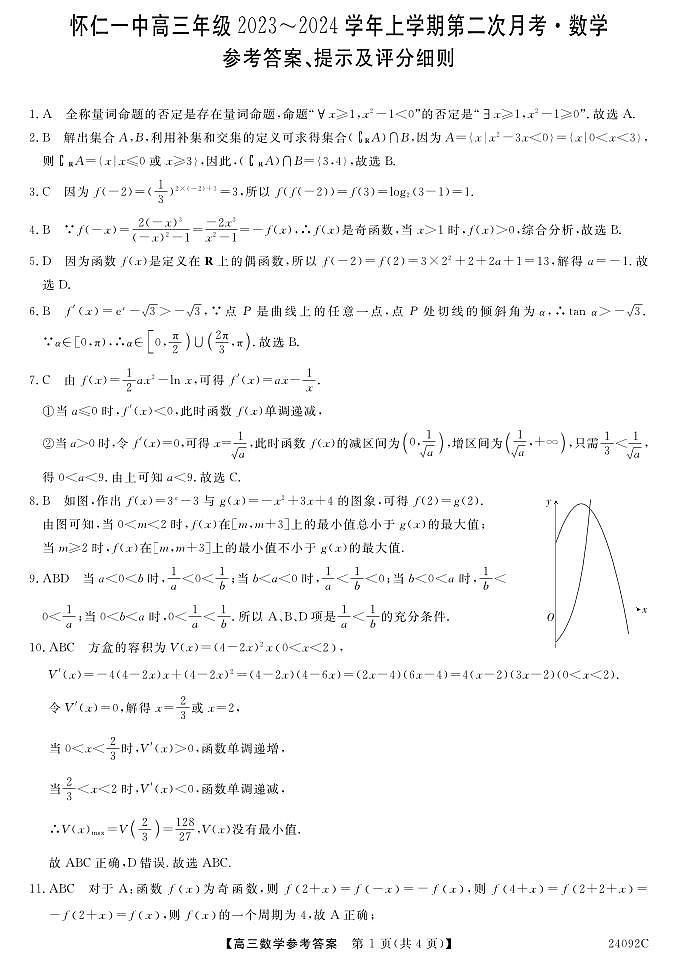 怀仁一中高三年级 2023~2024 学年上学期第二次月考·数学
参考答案、提示及评分细则
1. A 全称量词命题的否定是存在量词命题,命题“∀x≥1,x²-1<0”的否定是“∃x≥1,x²-1≥0”.故选 A.
2. B 解出集合 A,B,利用补集和交集的定义可求得集合(∁ᴿA)∩B,因为 A={x|x²-3x<0}={x|0<x<3},
则∁ᴿA={x|x≤0 或 x≥3},因此,(∁ᴿA)∩B={3,4},故选 B.
3. C 因为 f(-2)=(1/3)^{2×(-2)+3}=3,所以 f(f(-2))=f(3)=log₂(3-1)=1.
4. B ∵f(-x)=2(-x)³/((-x)²-1)=-2x³/(x²-1)=-f(x),∴f(x)是奇函数,当 x>1 时,f(x)>0,综合分析,故选 B.
5. D 因为函数 f(x)是定义在 R 上的偶函数,所以 f(-2)=f(2)=3×2²+2+2a+1=13,解得 a=-1. 故
选 D.
6. B f′(x)=eˣ-√3>-√3,∵点 P 是曲线上的任意一点,点 P 处切线的倾斜角为 α,∴tan α>-√3.
∵α∈[0,π),∴α∈[0,π/2)∪(2π/3,π).故选 B.
7. C 由 f(x)=1/2 ax²-ln x,可得 f′(x)=ax-1/x.
①当 a≤0 时,f′(x)<0,此时函数 f(x)单调递减,
②当 a>0 时,令 f′(x)=0,可得 x=1/√a,此时函数 f(x)的减区间为(0,1/√a),增区间为(1/√a,+∞),只需1/3<1/√a,
得 0<a<9. 由上可知 a<9. 故选 C.
8. B 如图,作出 f(x)=3ˣ-3 与 g(x)=-x²+3x+4 的图象,可得 f(2)=g(2).
由图可知,当 0<m<2 时,f(x)在[m,m+3]上的最小值总小于 g(x)的最大值;
当 m≥2 时,f(x)在[m,m+3]上的最小值不小于 g(x)的最大值.
y
O
x
9. ABD 当 a<0<b 时,1/a<0<1/b;当 b<a<0 时,1/a<1/b<0;当 b<0<a 时,1/b<
0<1/a;当 0<b<a 时,0<1/a<1/b. 所以 A、B、D 项是1/a<1/b的充分条件.
10. ABC 方盒的容积为 V(x)=(4-2x)²x(0<x<2),
V′(x)=-4(4-2x)x+(4-2x)²=(4-2x)(4-6x)=(2x-4)(6x-4)=4(x-2)(3x-2)(0<x<2).
令 V′(x)=0,解得 x=2/3或 x=2,
当 0<x<2/3时,V′(x)>0,函数单调递增,
当2/3<x<2 时,V′(x)<0,函数单调递减,
∴V(x)max=V(2/3)=128/27,V(x)没有最小值.
故 ABC 正确,D 错误. 故选 ABC.
11. ABC 对于 A:函数 f(x)为奇函数,则 f(2+x)=f(-x)=-f(x),则 f(4+x)=f(2+2+x)=
-f(2+x)=f(x),则 f(x)的一个周期为 4,故 A 正确;
【高三数学参考答案 第 1 页(共 4 页)】 24092C